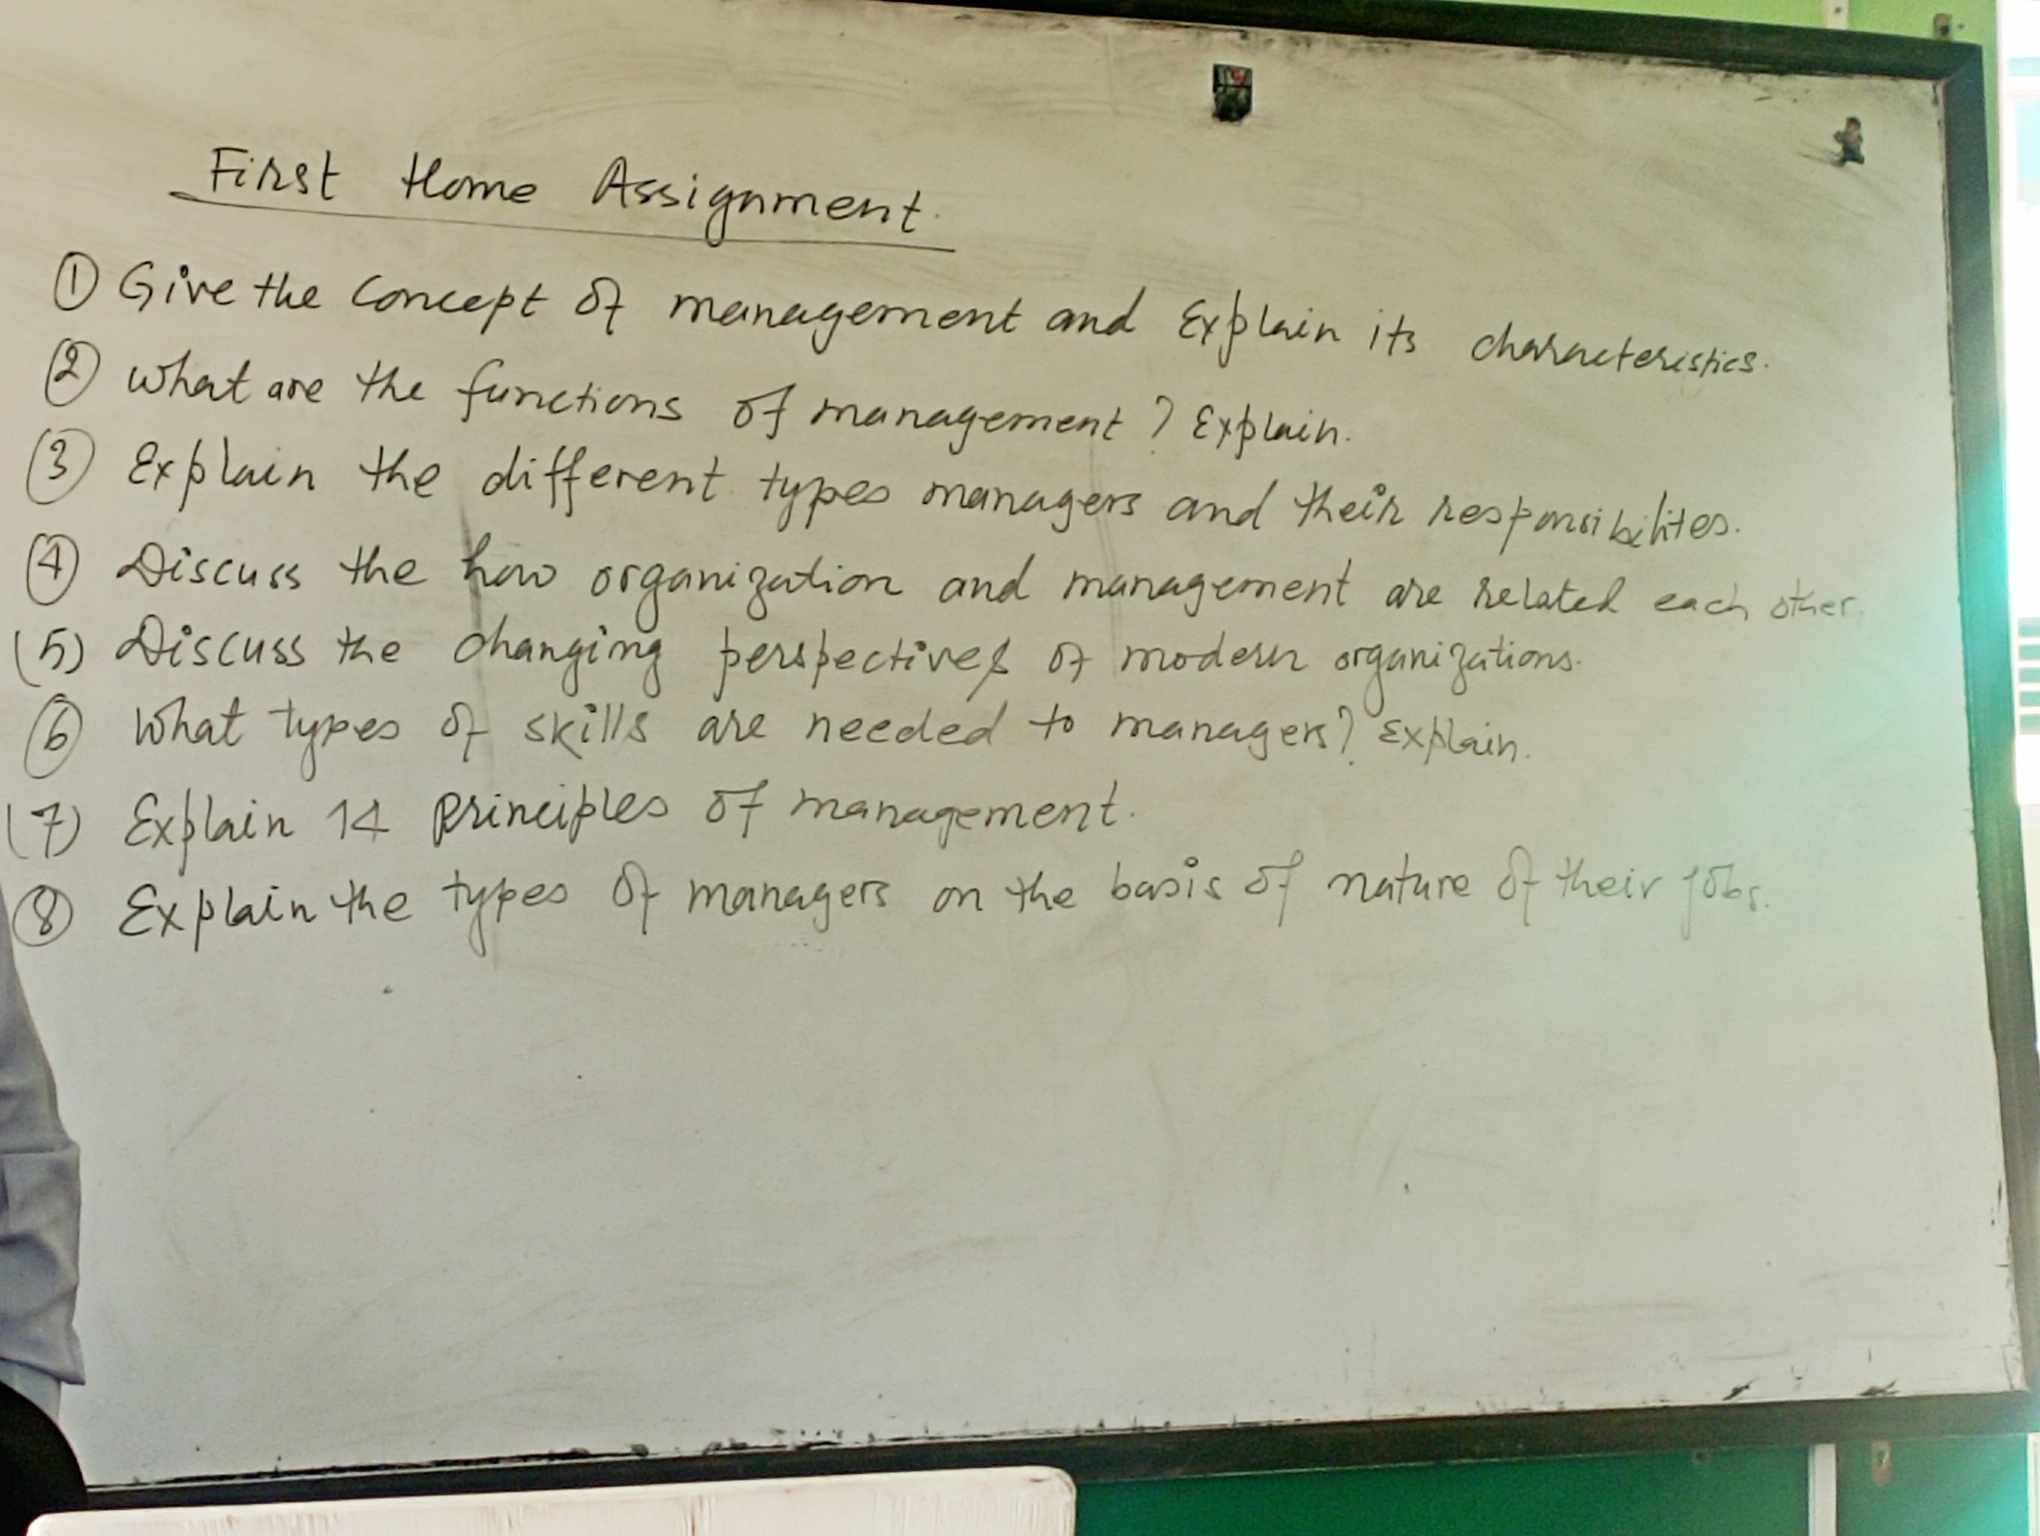 First Home Assignment.
① Give the concept of management and Explain its characteristics.
② What are the functions of management? Explain.
③ Explain the different types managers and their responsibilites.
④ Discuss the how organization and management are related each other.
(5) Discuss the changing perspectives of modern organizations.
⑥ What types of skills are needed to managers? Explain.
(7) Explain 14 principles of management.
⑧ Explain the types of managers on the basis of nature of their jobs.